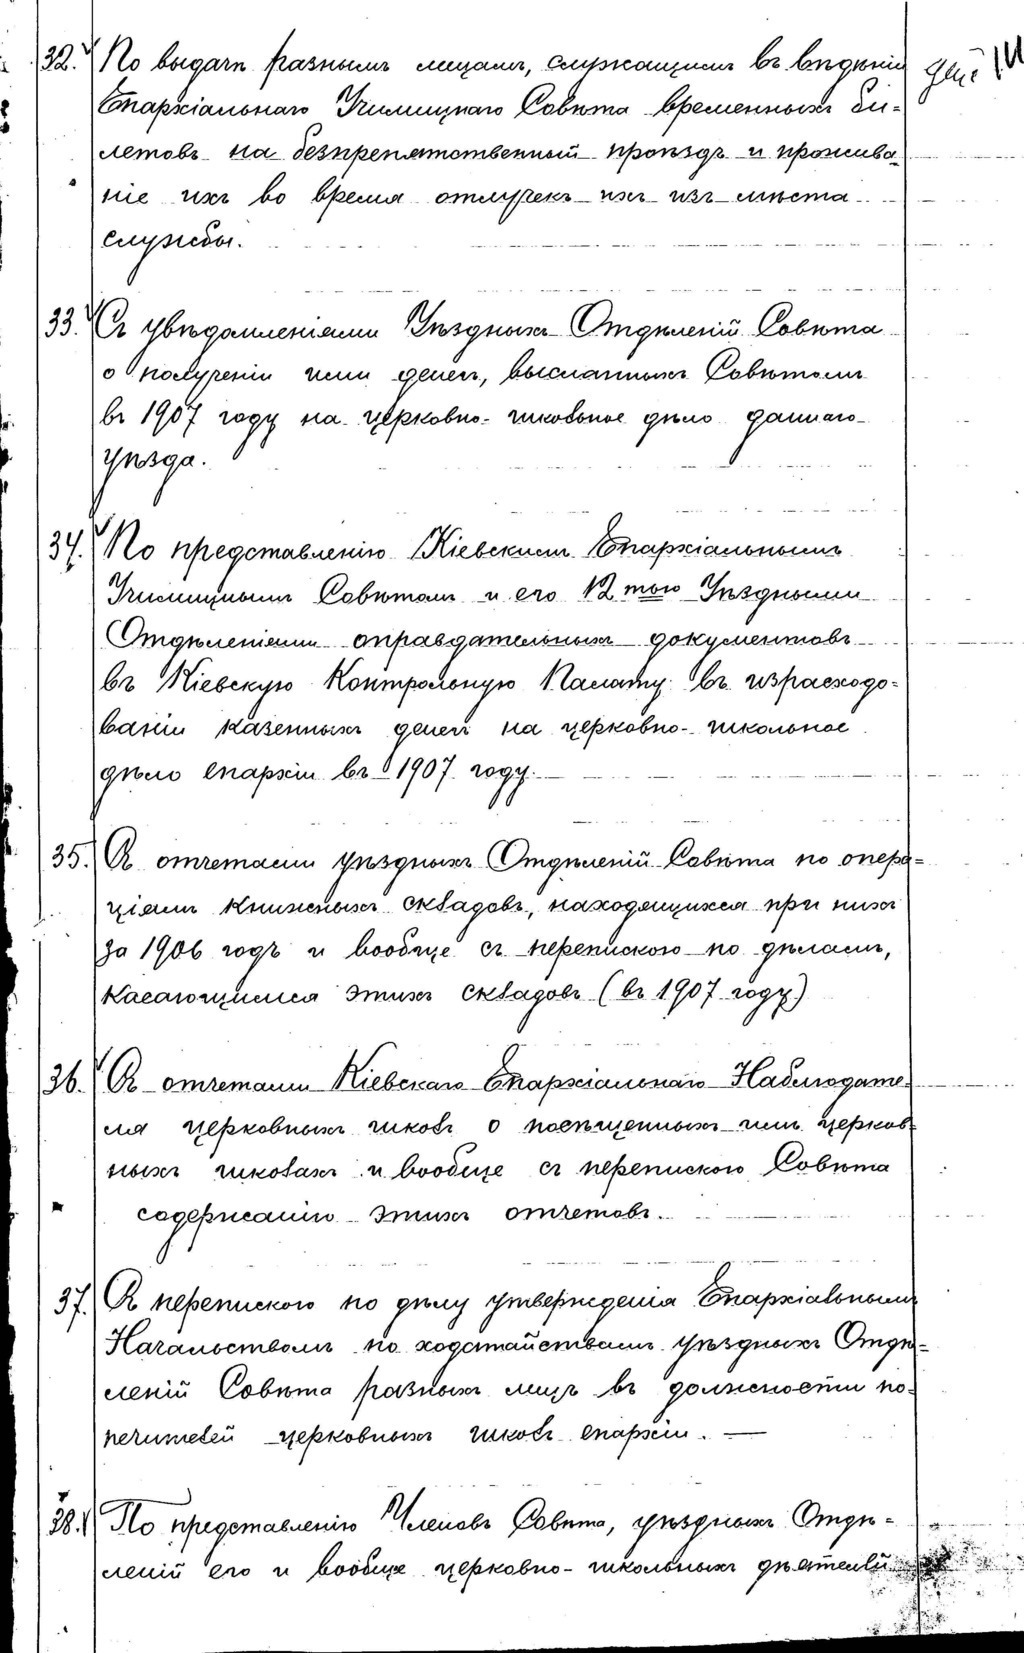 32. По выдачѣ разнымъ лицамъ, служащимъ въ вѣдѣніи
Епархіальнаго Училищнаго Совѣта временныхъ би-
летовъ на безпрепятственный проѣздъ и прожива-
ніе ихъ во время отлучекъ ихъ изъ мѣста
службы.
33. Съ увѣдомленіями Уѣздныхъ Отдѣленій Совѣта
о полученіи ими денегъ, высланныхъ Совѣтомъ
въ 1907 году на церковно-школьное дѣло даннаго
уѣзда.
34. По представленію Кіевскимъ Епархіальнымъ
Училищнымъ Совѣтомъ и его 12тью Уѣздными
Отдѣленіями оправдательныхъ документовъ
въ Кіевскую Контрольную Палату въ израсходо-
ваніи казенныхъ денегъ на церковно-школьное
дѣло епархіи въ 1907 году.
35. Съ отчетами уѣздныхъ Отдѣленій Совѣта по опера-
ціямъ книжныхъ складовъ, находящихся при нихъ
за 1906 годъ и вообще съ перепискою по дѣламъ,
касающимся этихъ складовъ (въ 1907 году)
36. Съ отчетами Кіевскаго Епархіальнаго Наблюдате-
ля церковныхъ школъ о посѣщенныхъ имъ церков-
ныхъ школахъ и вообще съ перепискою Совѣта
содержанію этихъ отчетовъ.
37. Съ перепискою по дѣлу утвержденія Епархіальнымъ
Начальствомъ по ходатайствамъ уѣздныхъ Отдѣ-
леній Совѣта разныхъ лицъ въ должности по-
печителей церковныхъ школъ епархіи.
38. По представленію Членовъ Совѣта, уѣздныхъ Отдѣ-
леній его и вообще церковно-школьныхъ дѣятелей